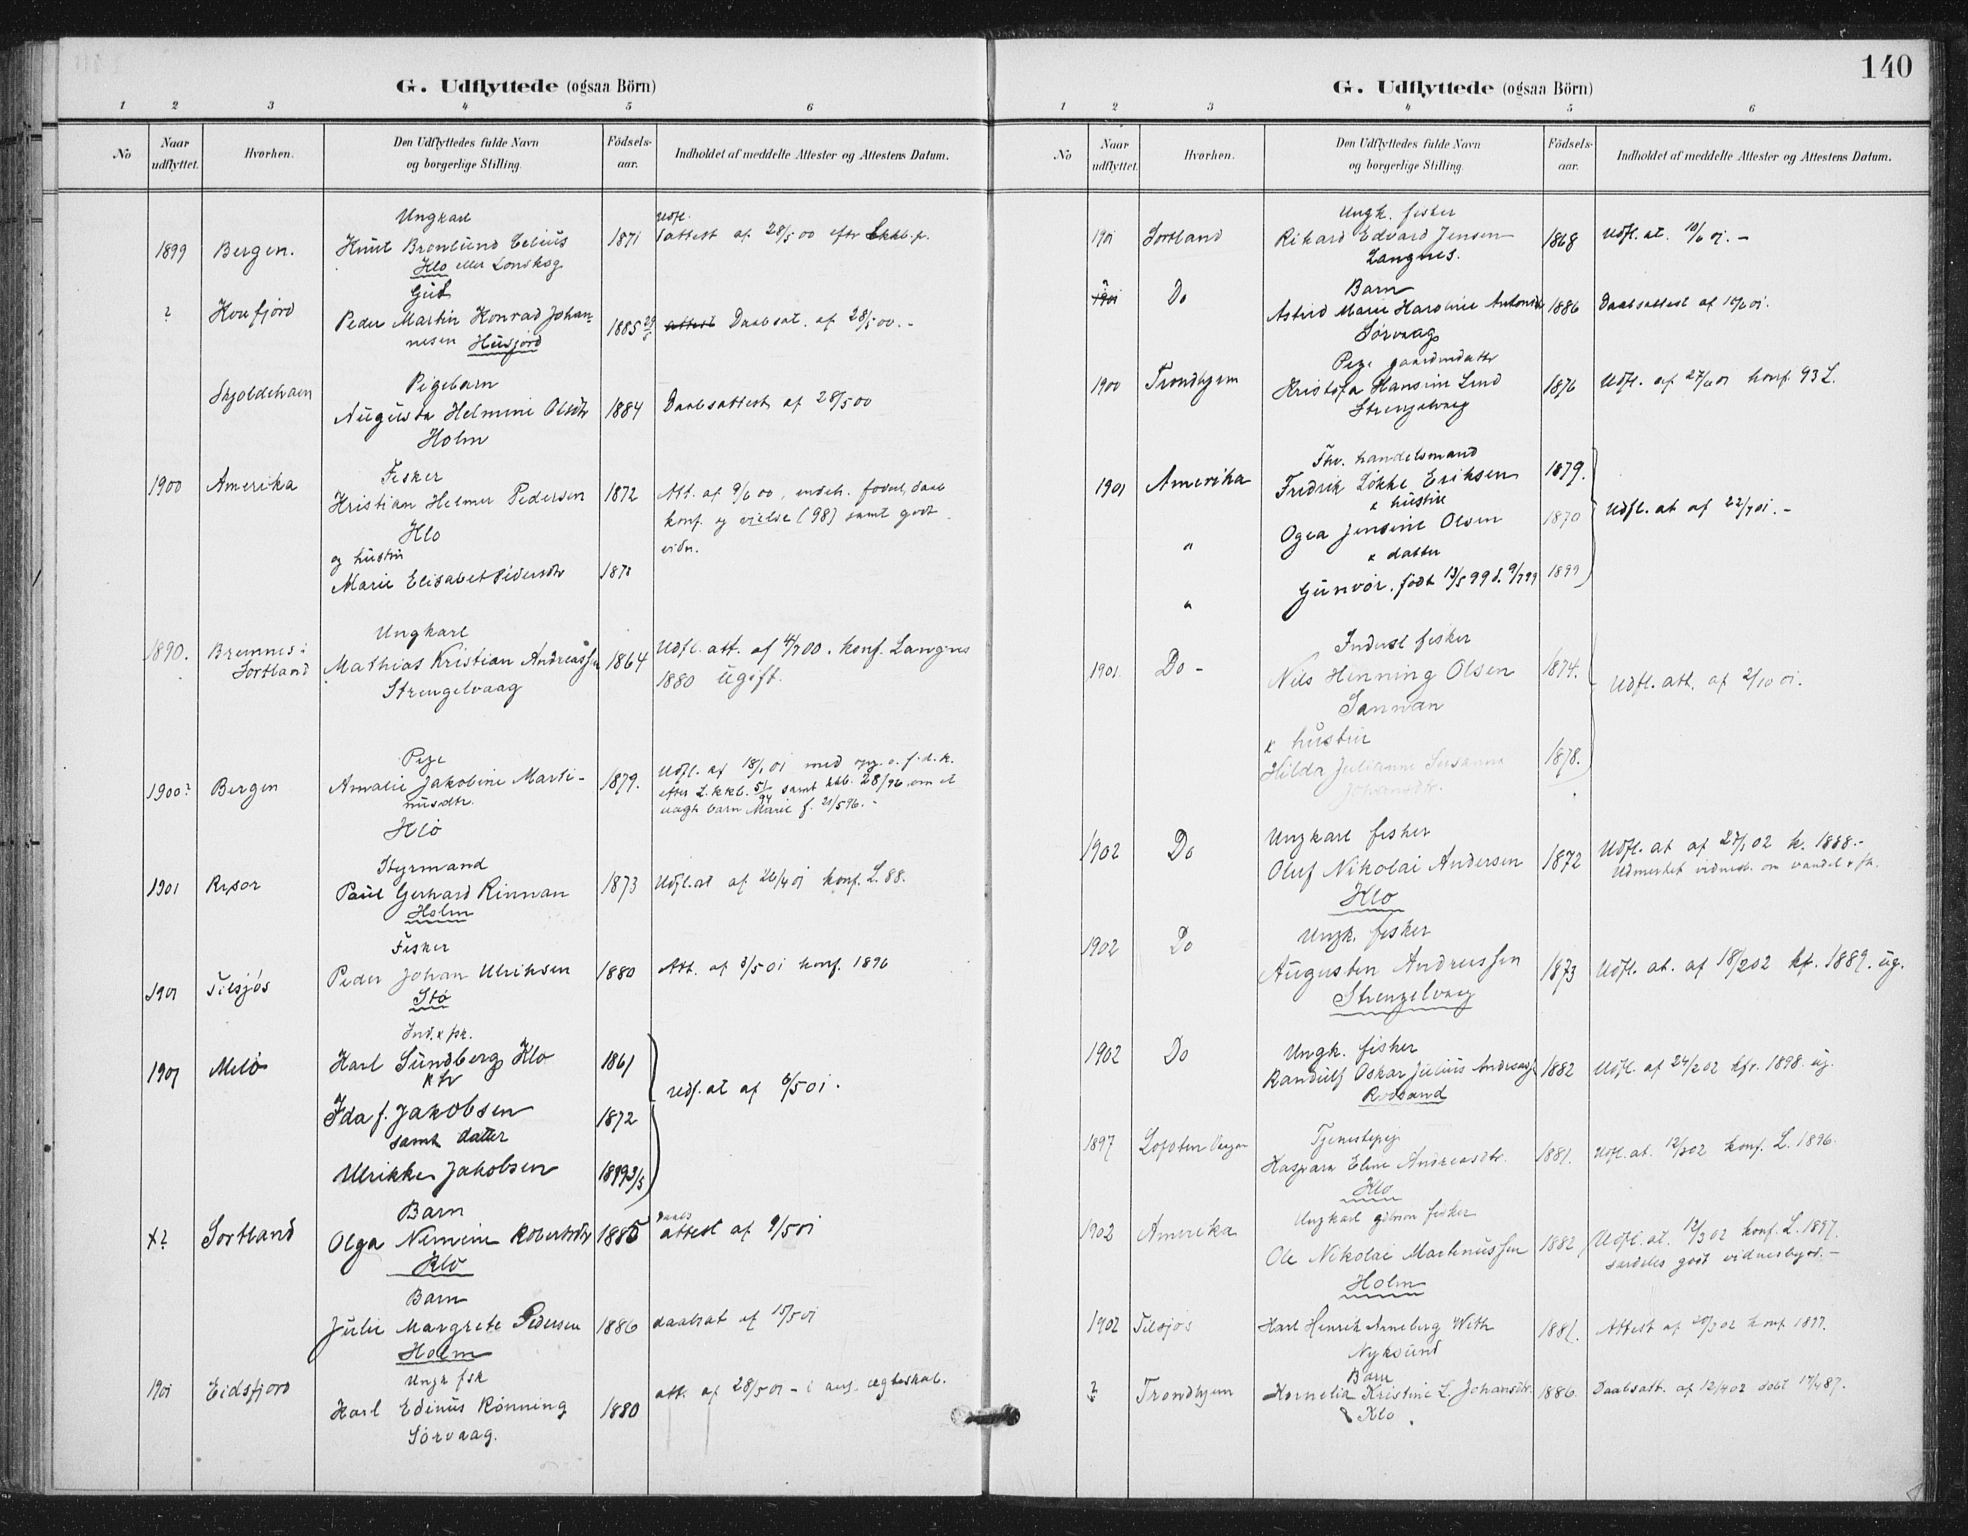 G. Udflyttede (ogsaa Börn)
1 2 3 4 5 6
No
Naar udflyttet.
Hvorhen.
Den Udflyttedes fulde Navn og borgerlige Stilling.
Födsels-aar.
Indholdet af meddelte Attester og Attestens Datum.
Ungkarl
1899 Bergen. Knut Bronlund 1871 Udfl. attest af 28/5 00 efter
Klo eller
Gut
? Peder Martin Konrad Johan- 1885 attest Daabsat. af 28/5 00. -
nesen Husjord
Pigebarn
Augusta Helmine Olsdtr 1884 Daabsattest af 28/5 00
Holm
Fisker
1900 Amerika Kristian Helmer Pedersen 1872 Att. af 9/6 00, indeh. fodsel, daab
Klo konf. og vielse (98) samt godt
og hustru vidn.
Marie Elisabet Pedersdtr
Ungkarl
1890. Bremnes i Mathias Kristian Andreassen 1864 Udfl. att. af 4/7 00. konf. Langnes
Sortland Strengelvaag 1880 ugift.
Pige
1900? Bergen Amalie Jakobine Marti- 1879. Udfl. af 18/1 01 med
nusdtr. samt
Klo uægte barn Marie f. 21/5 96. -
Styrmand
1901 Risør Paul Gerhard Rinnan 1873 Udfl. at af 26/4 01 konf. L. 88.
Holm
Fisker
1901 Tilsjøs Peder Johan Ulriksen 1880 Att. af 3/5 01 konf. 1896
Stø
Ind. & fsk.
1901 Melø Karl Sundberg Klo 1861
& h udf. at af 6/5 01.
Ida f. Jakobsen 1872
samt datter
Ulrikke Jakobsen 1899 3/5
Barn
x? Sortland Olga Robertsdtr 1885 Daabsattest af 9/5 01
Klo
Barn
Julie Margrete Pedersen 1886 daabsat af 15/5 01
Holm
Ungk fsk
1901 Eidsfjord Karl Edinus Rønning 1880 att. af 28/5 01 - i anl. ægteskab.
Sørvaag.
140
G. Udflyttede (ogsaa Börn)
1 2 3 4 5 6
No
Naar udflyttet.
Hvorhen.
Den Udflyttedes fulde Navn og borgerlige Stilling.
Födsels-aar.
Indholdet af meddelte Attester og Attestens Datum.
Ungk. fisker
1901 Sortland Rikard Edvard Jensen 1868 Udfl. at. 10/6 01. -
Langnes.
Barn
? 1901 Do Astrid Marie Karoline 1886 Daabsattest af 10/6 01.
Sørvaag
Pige gaardmdatter
1900 Trondhjem Kristofa Hansine Lind 1876 Udfl. af 27/6 01 konf. 93 L.
Strengelvaag
Fhv. handelsmand
1901 Amerika Fredrik Løkke Eriksen 1879.
& hustru
" Olsen 1870 Udfl. at af 22/7 01. -
& datter
" Gunvor. født 13/5 99 d. 9/7 99 1899
Inderst fisker
1901 Do - Nils Henning Olsen 1874. Udfl. att. af 2/10 01.
Sannan
& hustru
Hilda Julianne Susanna 1878.
Johansdtr.
Ungkarl fisker
1902 Do Oluf Nikolai Andersen 1872 Udfl. at af 27/1 02 k. 1888.-
Klo Udmerket vidnesb. om vandel
Ungk. fisker
1902 Do Augustin Andreassen 1873 Udfl. at. af 18/2 02 kf. 1889. ug.
Strengelvaag
Ungk. fisker
1902 Do Randulf Oskar Julius Andreass 1882 Udfl. af 24/2 02 kfr. 1898. ug.
Rødsand
Tjenestepige
1897 Lofoten Kaspara Eline Andreasdtr. 1881. Udfl. at. 12/3 02 konf. L. 1896.
Klo
Ungkarl fisker
1902 Amerika Ole Nikolai Martinussen 1882 Udfl. at. 12/3 02 konf. L. 1897.
Holm særdeles godt vidnesbyrd. -
1902 Tilsjøs Karl Henrik Anneberg With 1881. Attest af 20/3 02 konf 1897.
Nyksund
Barn
? Trondhjem Kornelia Kristine L. Johansdtr. 1886. Daabsatt. af 12/4 02 døbt 17/4 87.
Klo